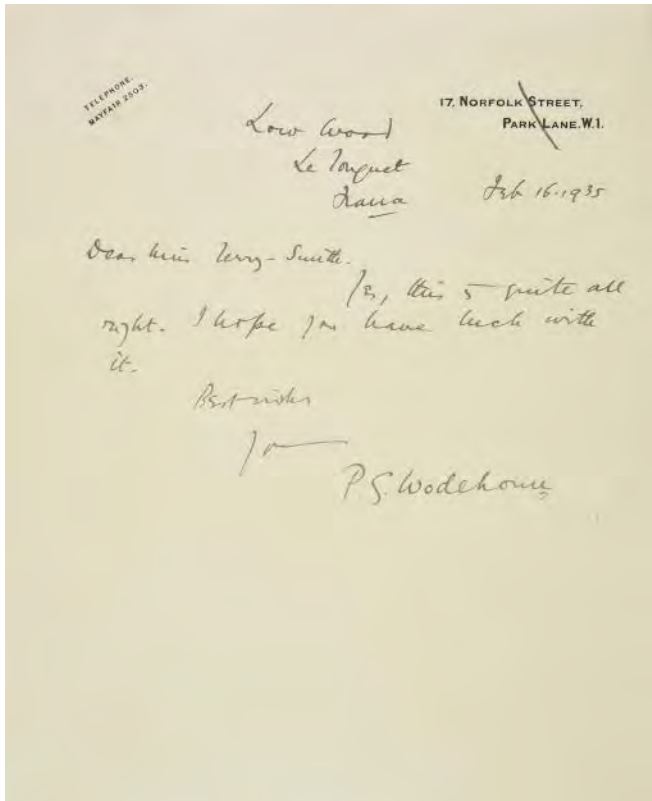 TELEPHONE.
MAYFAIR 2503.
17, NORFOLK STREET,
PARK LANE. W.1.
Low Wood
Le Touquet
France
Feb 16. 1935
Dear Miss Terry-Smith.
Yes, this is quite all
right. I hope you have luck with
it.
Best wishes
Yours
P G. Wodehouse